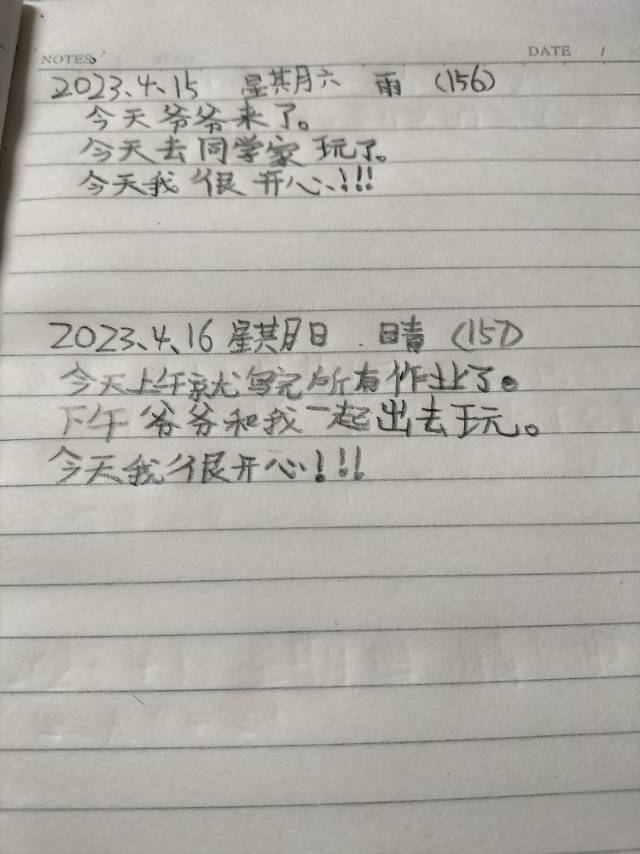 NOTES
DATE /
2023、4、15 星期六 雨 (156)
今天爷爷来了。
今天去同学家玩了。
今天我很开心!!!
2023、4、16 星期日 晴 (157)
今天上午就写完所有作业了。
下午爷爷和我一起出去玩。
今天我很开心!!!